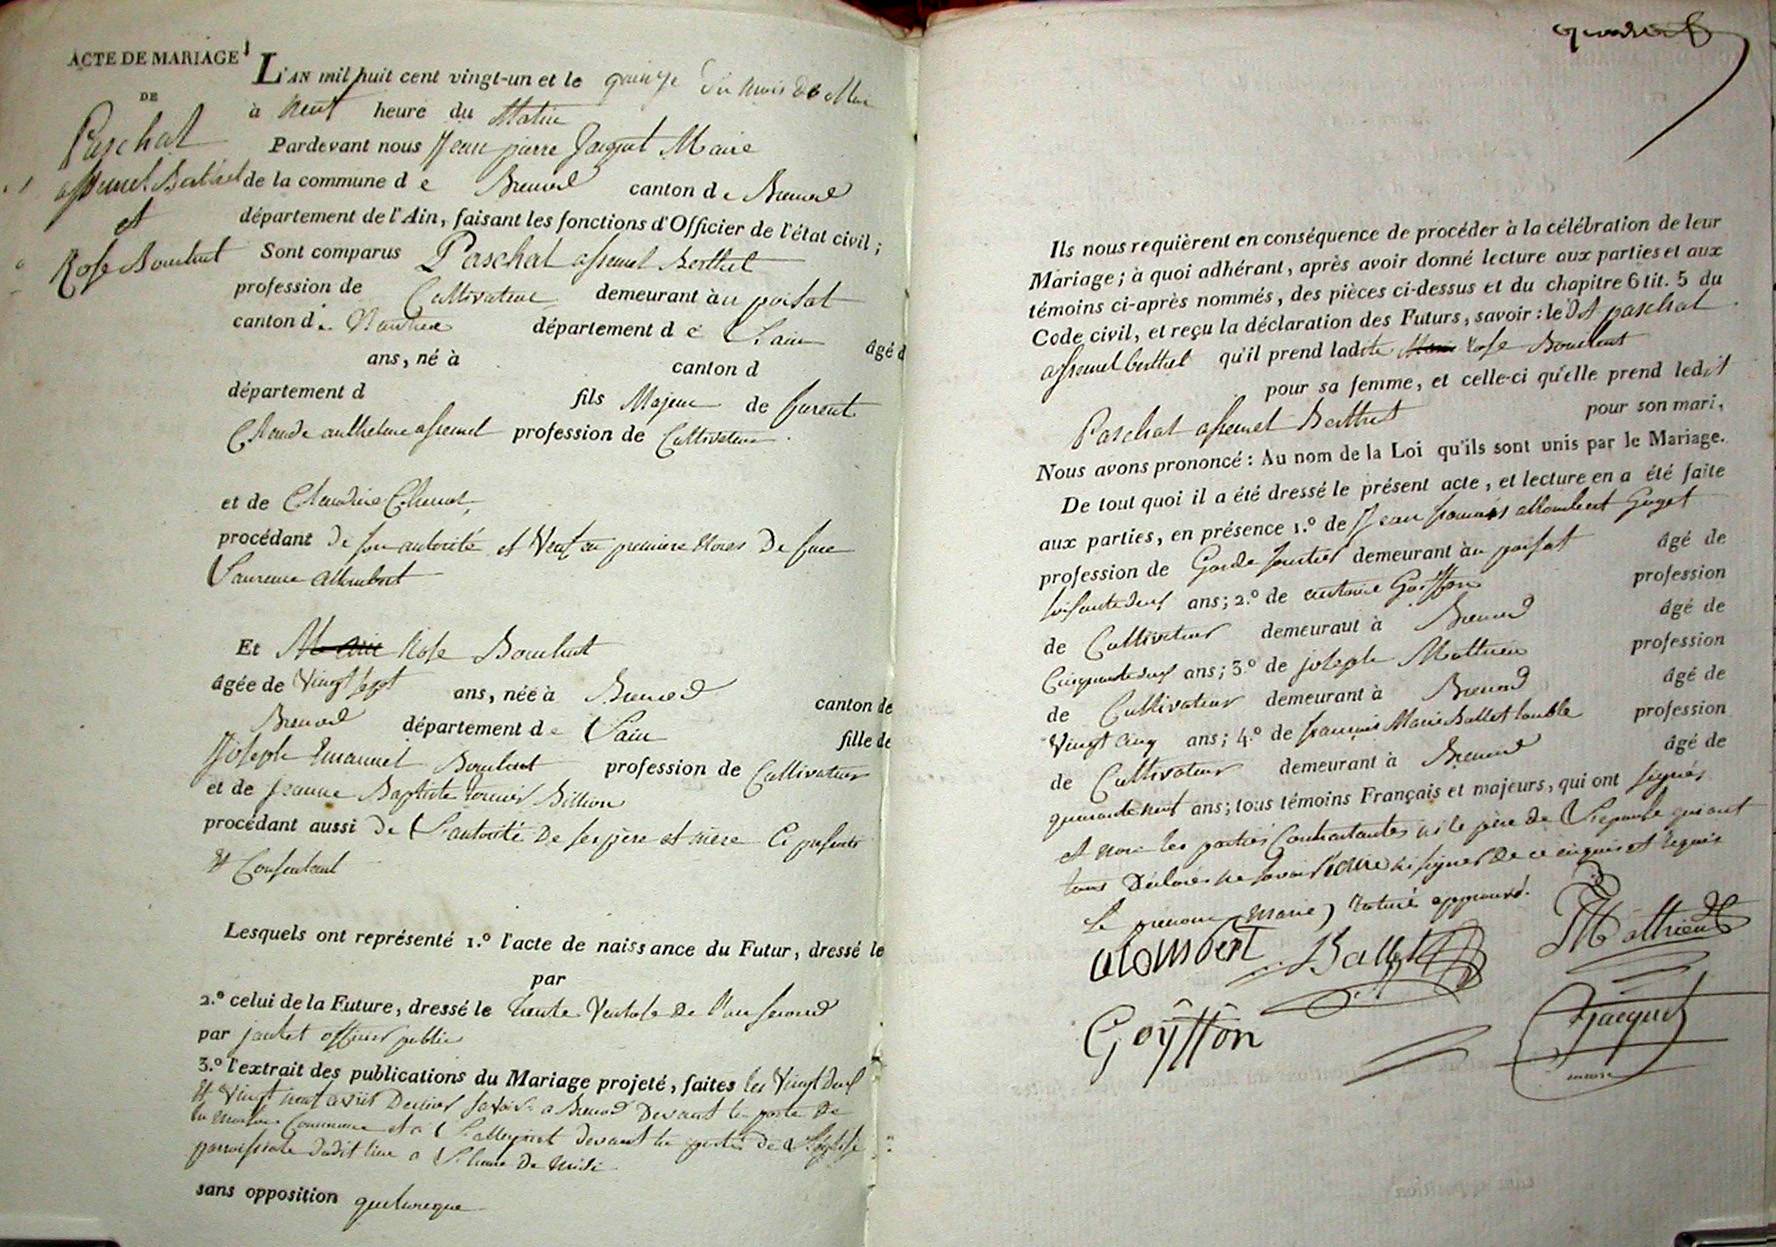 ACTE DE MARIAGE
DE
Paschal
assumel Berthet
et
Rose Bouchut
L'AN mil huit cent vingt-un et le quinze du mois de Mai
à neuf heure du Matin
Pardevant nous Jean pierre Jacquet Maire
de la commune d e Brenod canton d e Brenod
département de l'Ain, faisant les fonctions d'Officier de l'état civil ;
Sont comparus Paschal assumel Berthet
profession de Cultivateur demeurant à u poisat
canton d e Nantua département d e L'ain âgé d
ans, né à canton d
département d fils Majeur de furent
Claude anthelme assumel profession de Cultivateur.
et de Claudine
procédant de son autorité et Veuf en première Noces De fue
Laurence allombert
Et Marie Rose Bouchut
âgée de Vingt sept ans, née à Brenod canton de
Brenod département d e L'ain fille de
Joseph Emanuel Bouchut profession de Cultivateur
et de Jeanne Baptiste Billion
procédant aussi de L'autorité De ses père et mère Ci présents
et Consentant
Lesquels ont représenté 1.º l'acte de naissance du Futur, dressé le
par
2.º celui de la Future, dressé le trente Ventose de l'an second
par officier public
3.º l'extrait des publications du Mariage projeté, faites les Vingt deux
et vingt neuf avril Dernier savoir a Brenod Devant la porte De
la maison Commune et à devant la porte de L'église
paroissiale dudit lieu a L'heure De midi
sans opposition quelconque
Ils nous requièrent en conséquence de procéder à la célébration de leur
Mariage ; à quoi adhérant, après avoir donné lecture aux parties et aux
témoins ci-après nommés, des pièces ci-dessus et du chapitre 6 tit. 5 du
Code civil, et reçu la déclaration des Futurs, savoir : le dt paschal
assumel berthet qu'il prend ladite Marie Rose Bouchut
pour sa femme, et celle-ci qu'elle prend ledit
Paschal assumel Berthet pour son mari,
Nous avons prononcé : Au nom de la Loi qu'ils sont unis par le Mariage.
De tout quoi il a été dressé le présent acte, et lecture en a été faite
aux parties, en présence 1.º de Jean françois allombert Goget
profession de Garde forestier demeurant à u poisat âgé de
soisante deux ans ; 2.º de antoine Goÿffon profession
de Cultivateur demeurant à Brenod âgé de
Cinquante deux ans ; 3.º de joseph Mathieu profession
de Cultivateur demeurant à Brenod âgé de
Vingt cinq ans ; 4.º de françois Marie Ballet profession
de Cultivateur demeurant à Brenod âgé de
quarante neuf ans ; tous témoins Français et majeurs, qui ont signés
et non les parties Contractantes ni le père de L'epouse qui ont
tous Déclarés ne savoir ecrire ni signer De ce enquis et requis
Le prenom (Marie) raturé approuvé.
alombert Ballet Mathieu
Goÿffon Jacquet
maire